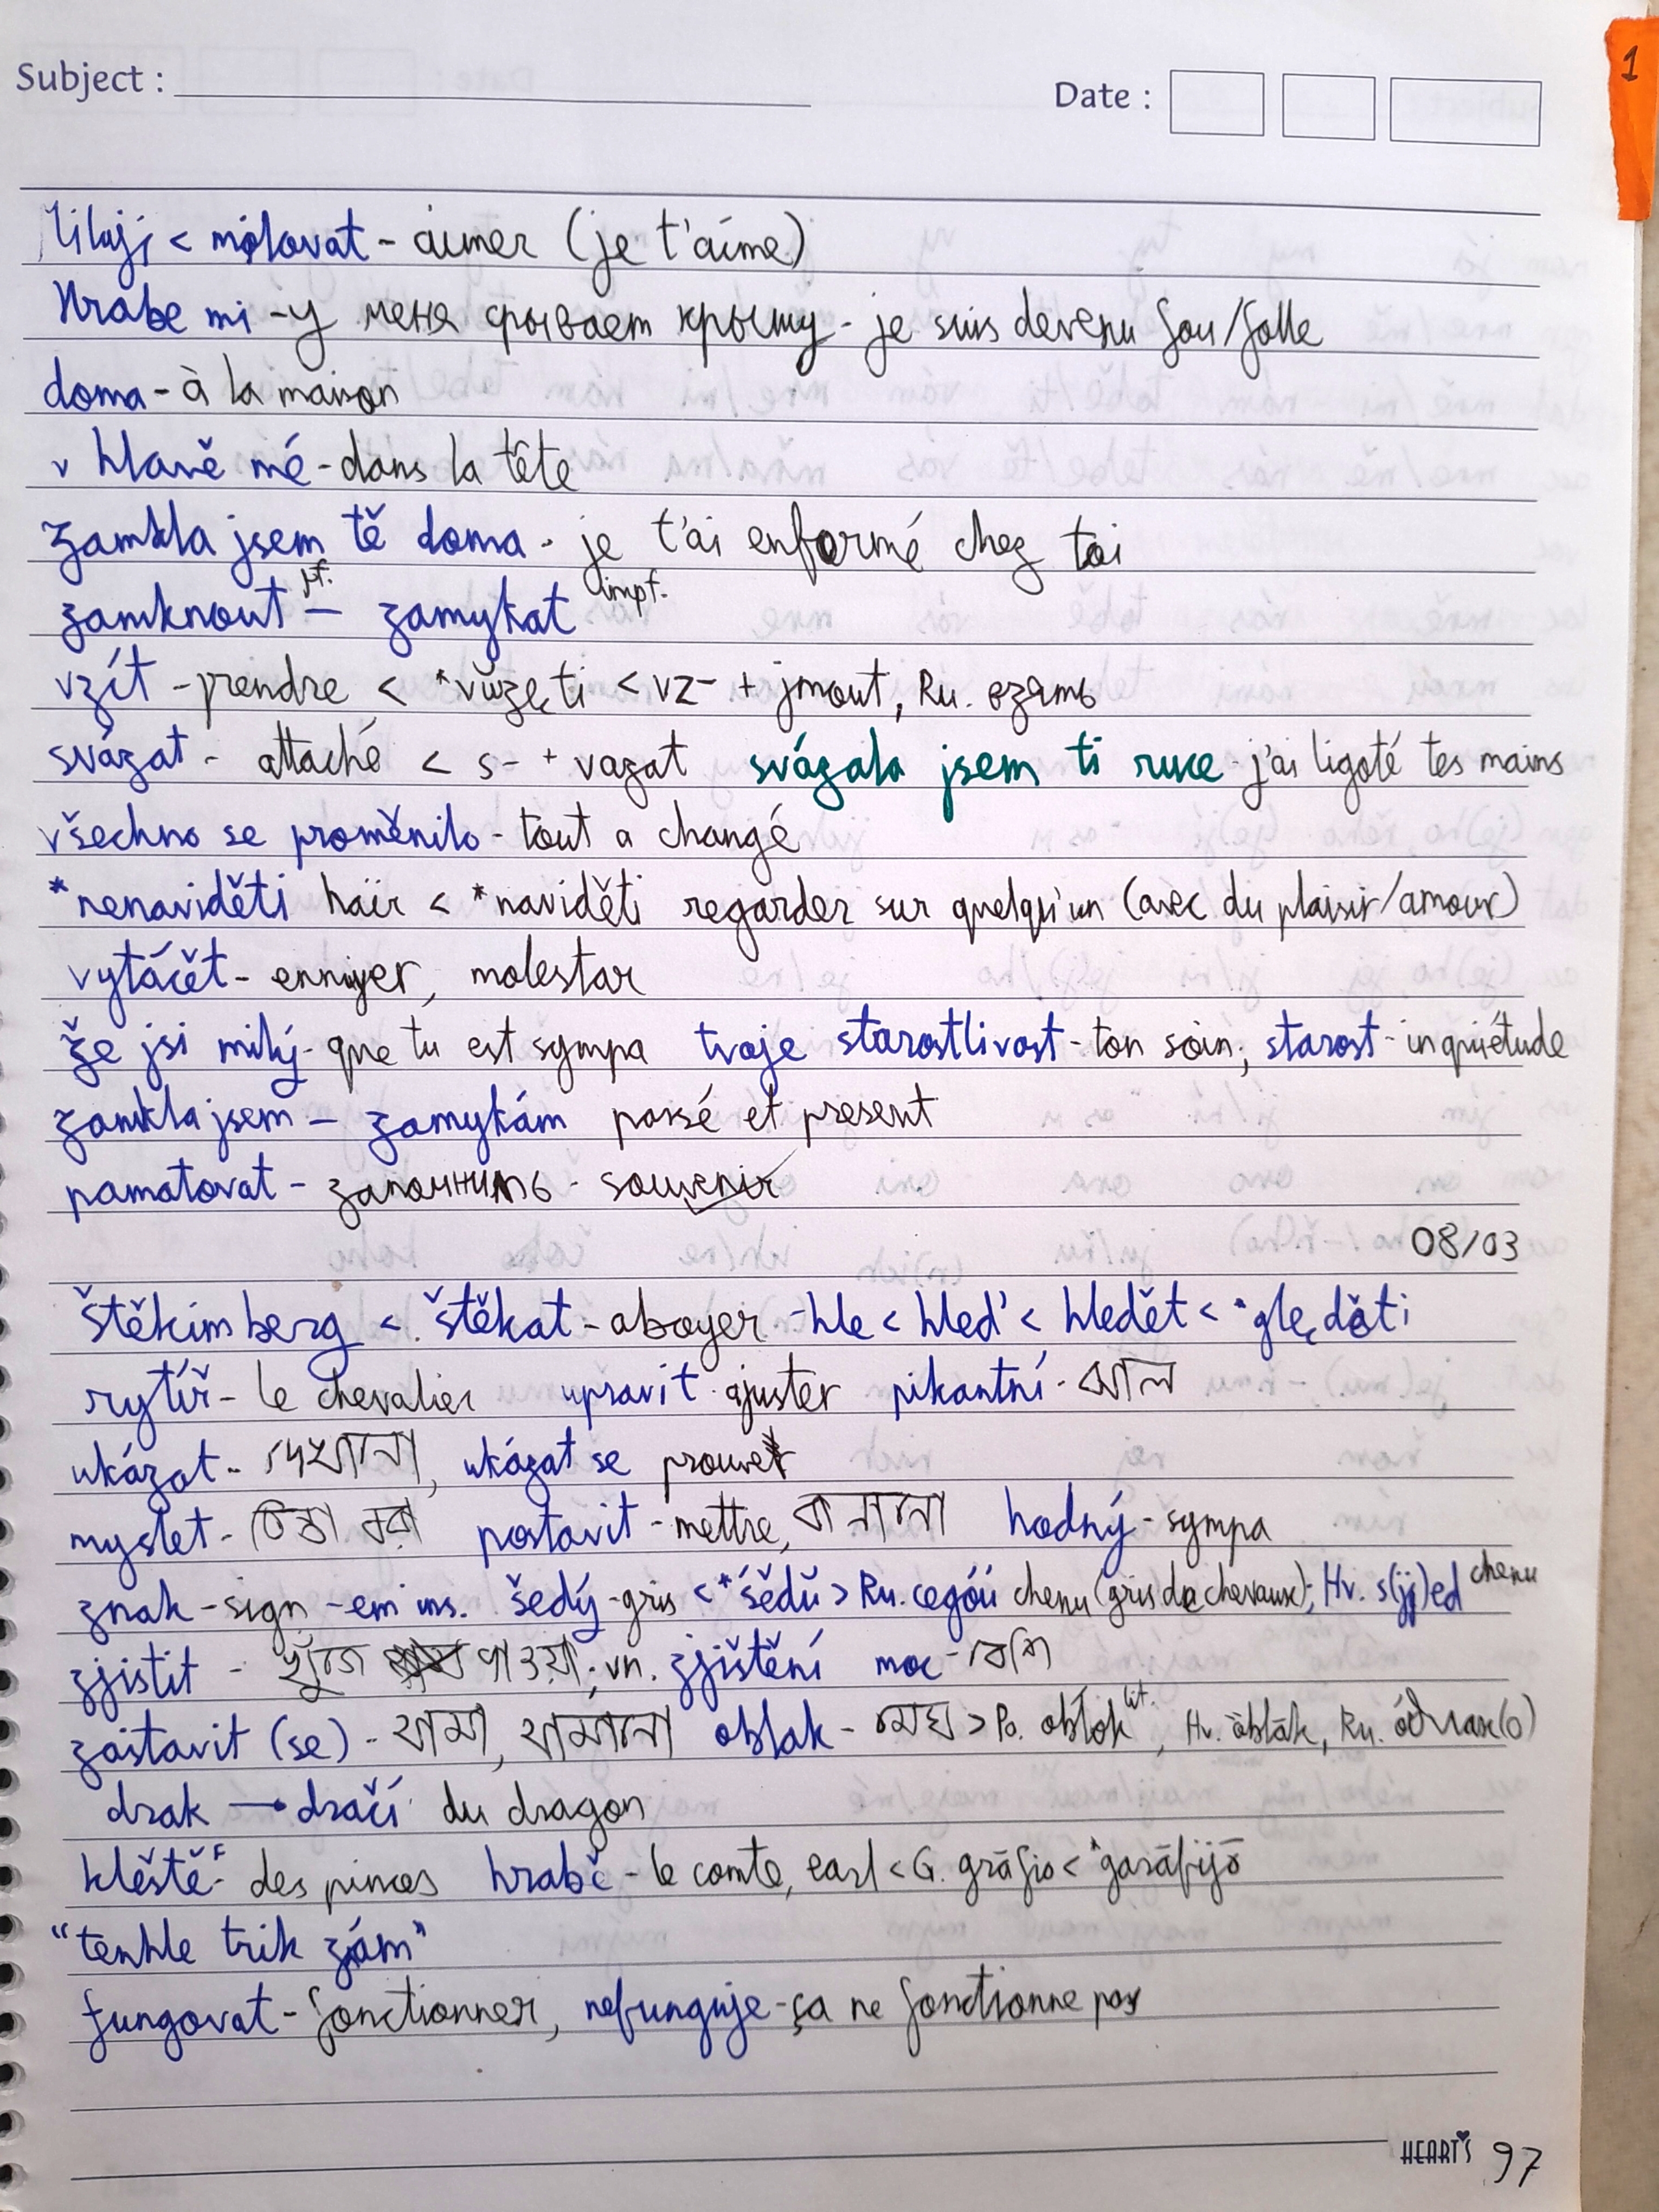 Subject :
Date :
1
miluji < milovat - aimer (je t'aime)
Hrabe mi - у меня срывает крышу - je suis devenu fou/folle
doma - à la maison
v hlavě mé - dans la tête
zamkla jsem tě doma - je t'ai enfermé chez toi
zamknout pf. — zamykat impf.
vzít - prendre < *vŭzęti < vz- + jmout, Ru. взять
svázat - attaché < s- + vazat svázala jsem ti ruce - j'ai ligoté tes mains
všechno se proměnilo - tout a changé
*nenaviděti haïr < *naviděti regarder sur quelqu'un (avec du plaisir/amour)
vytáčět - ennuyer, molestar
že jsi milý - que tu est sympa tvoje starostlivost - ton soin; starost - inquiétude
zamkla jsem — zamykám passé et present
pamatovat - запомнить - souvenir
08/03
štěkimberg < štěkat - aboyer - hle < hleď < hledět < *ględěti
rytíř - le chevalier upravit - ajuster pikantní - ঝাল
ukázat - দেখানো, ukázat se prouver
myslet - চিন্তা করা postavit - mettre, বানানো hodný - sympa
znak - sign -em ins. šedý - gris < *śědŭ > Ru. седой chenu (gris de cheveux); Hv. s(ij)ed chenu
zjistit - খুঁজে পাওয়া; vn. zjištění moc - বেশি
zastavit (se) - থামা, থামানো oblak - মেঘ > Po. obłok lit., Hv. ȍblāk, Ru. óблак(о)
drak → dračí du dragon
kleště F - des pinces hrabě - le comte, earl < G. grāfio < *garāfijō
"tenhle trik znám"
fungovat - fonctionner, nefunguje - ça ne fonctionne pas
HEART'S 97